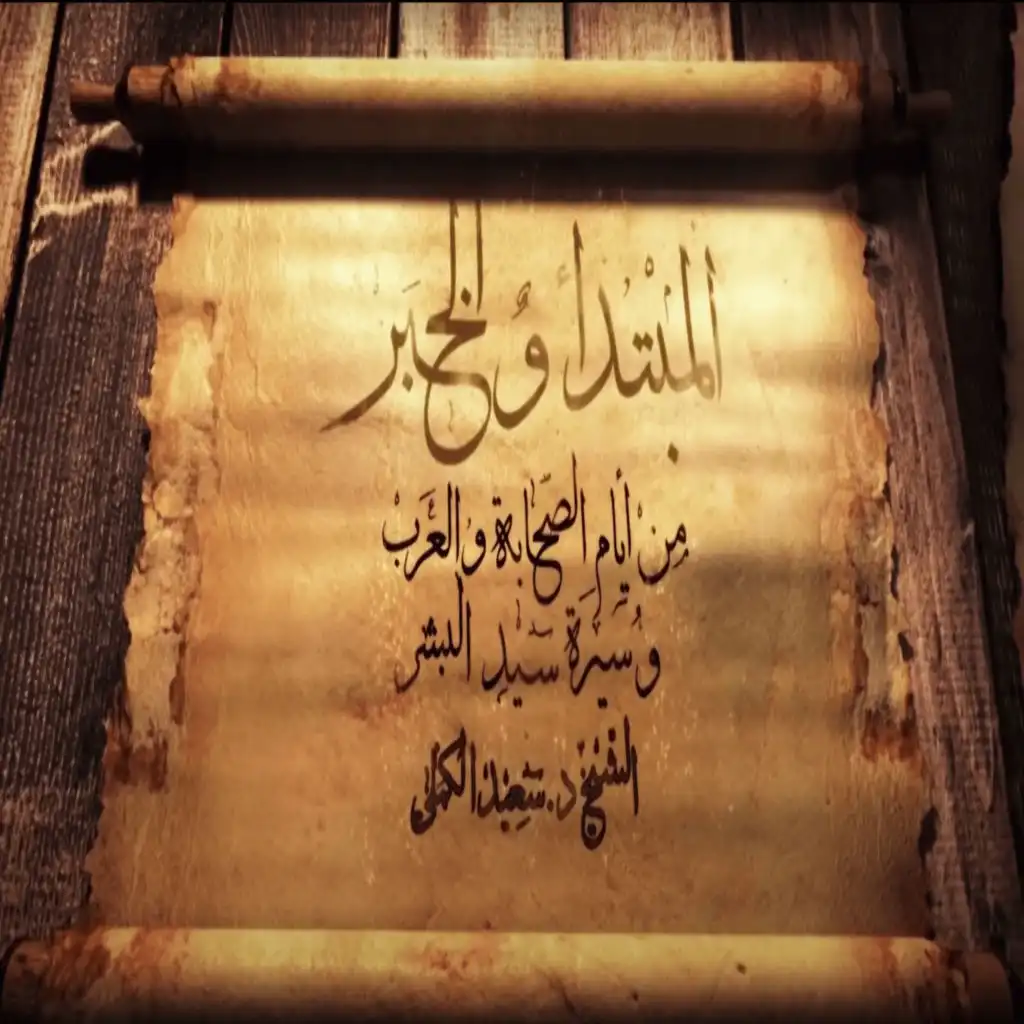 المبتدأ والخبر
من أيام الصحابة والعرب
وسيرة سيد البشر
الشيخ د. سعيد الكملي